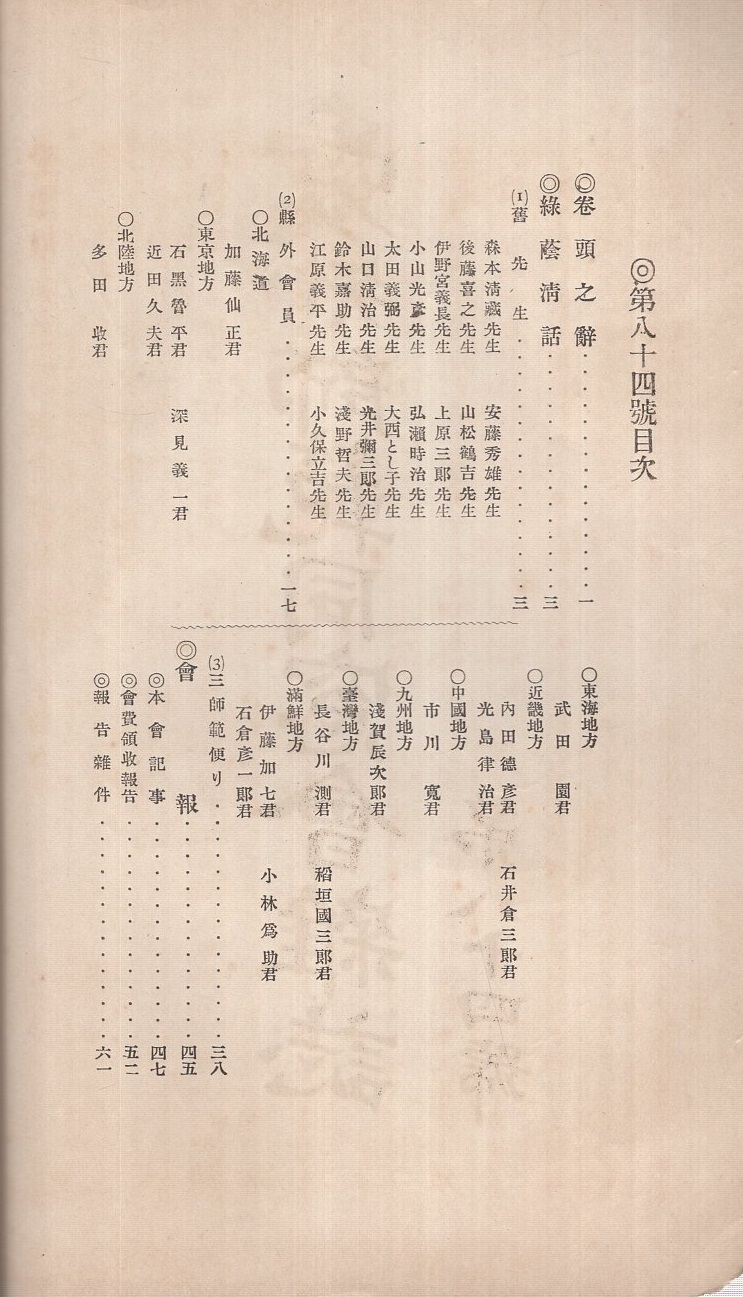 ◎第八十四號目次
◎卷頭之辭・・・・・・・・・・・・・・一
◎綠蔭淸話・・・・・・・・・・・・・・三
(1)舊先生・・・・・・・・・・・・・・三
森本淸藏先生 安藤秀雄先生
後藤喜之先生 山松鶴吉先生
伊野宮義長先生 上原三郞先生
小山光彥先生 弘瀨時治先生
太田義弼先生 大西とし子先生
山口淸治先生 光井彌三郞先生
鈴木嘉助先生 淺野哲夫先生
江原義平先生 小久保立吉先生
(2)縣外會員・・・・・・・・・・・・・・一七
○北海道
加藤仙正君
○東京地方
石黑魯平君 深見義一君
近田久夫君
○北陸地方
多田收君
○東海地方
武田園君
○近畿地方
內田德彥君 石井倉三郞君
光島律治君
○中國地方
市川寬君
○九州地方
淺賀辰次郞君
○臺灣地方
長谷川測君 稻垣國三郞君
○滿鮮地方
伊藤加七君 小林爲助君
石倉彥一郞君
(3)三師範便り・・・・・・・・・・・・・・三八
◎會報・・・・・・・・・・・・・・四五
◎本會記事・・・・・・・・・・・・・・四七
◎會費領收報告・・・・・・・・・・・・・・五二
◎報告雜件・・・・・・・・・・・・・・六一